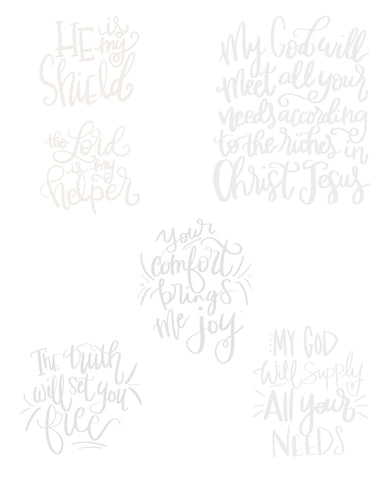 HE is
my
Shield
My God will
meet all your
needs according
to the riches in
Christ Jesus
the Lord
is my
helper
Your
comfort
brings
me joy
The truth
will set you
free
MY GOD
Will Supply
All your
NEEDS